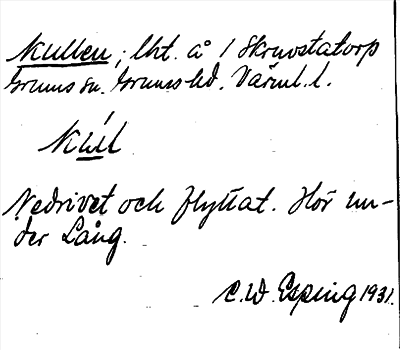 Kullen, lht. å 1 Skruvstatorp
Grums sn. Grums hd. Värml. l.
Kul̄l
Nedrivet och flyttat. Hör un-
der Lång.
C.W. Esping 1931.